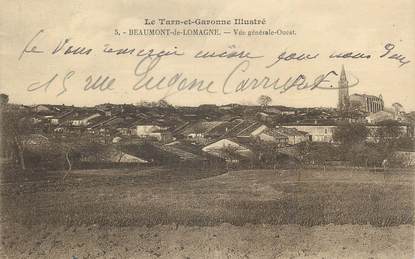 Le Tarn-et-Garonne Illustré
5. - BEAUMONT-de-LOMAGNE. - Vue générale-Ouest.
Je Vous remercie encore pour nous
15 rue Eugène